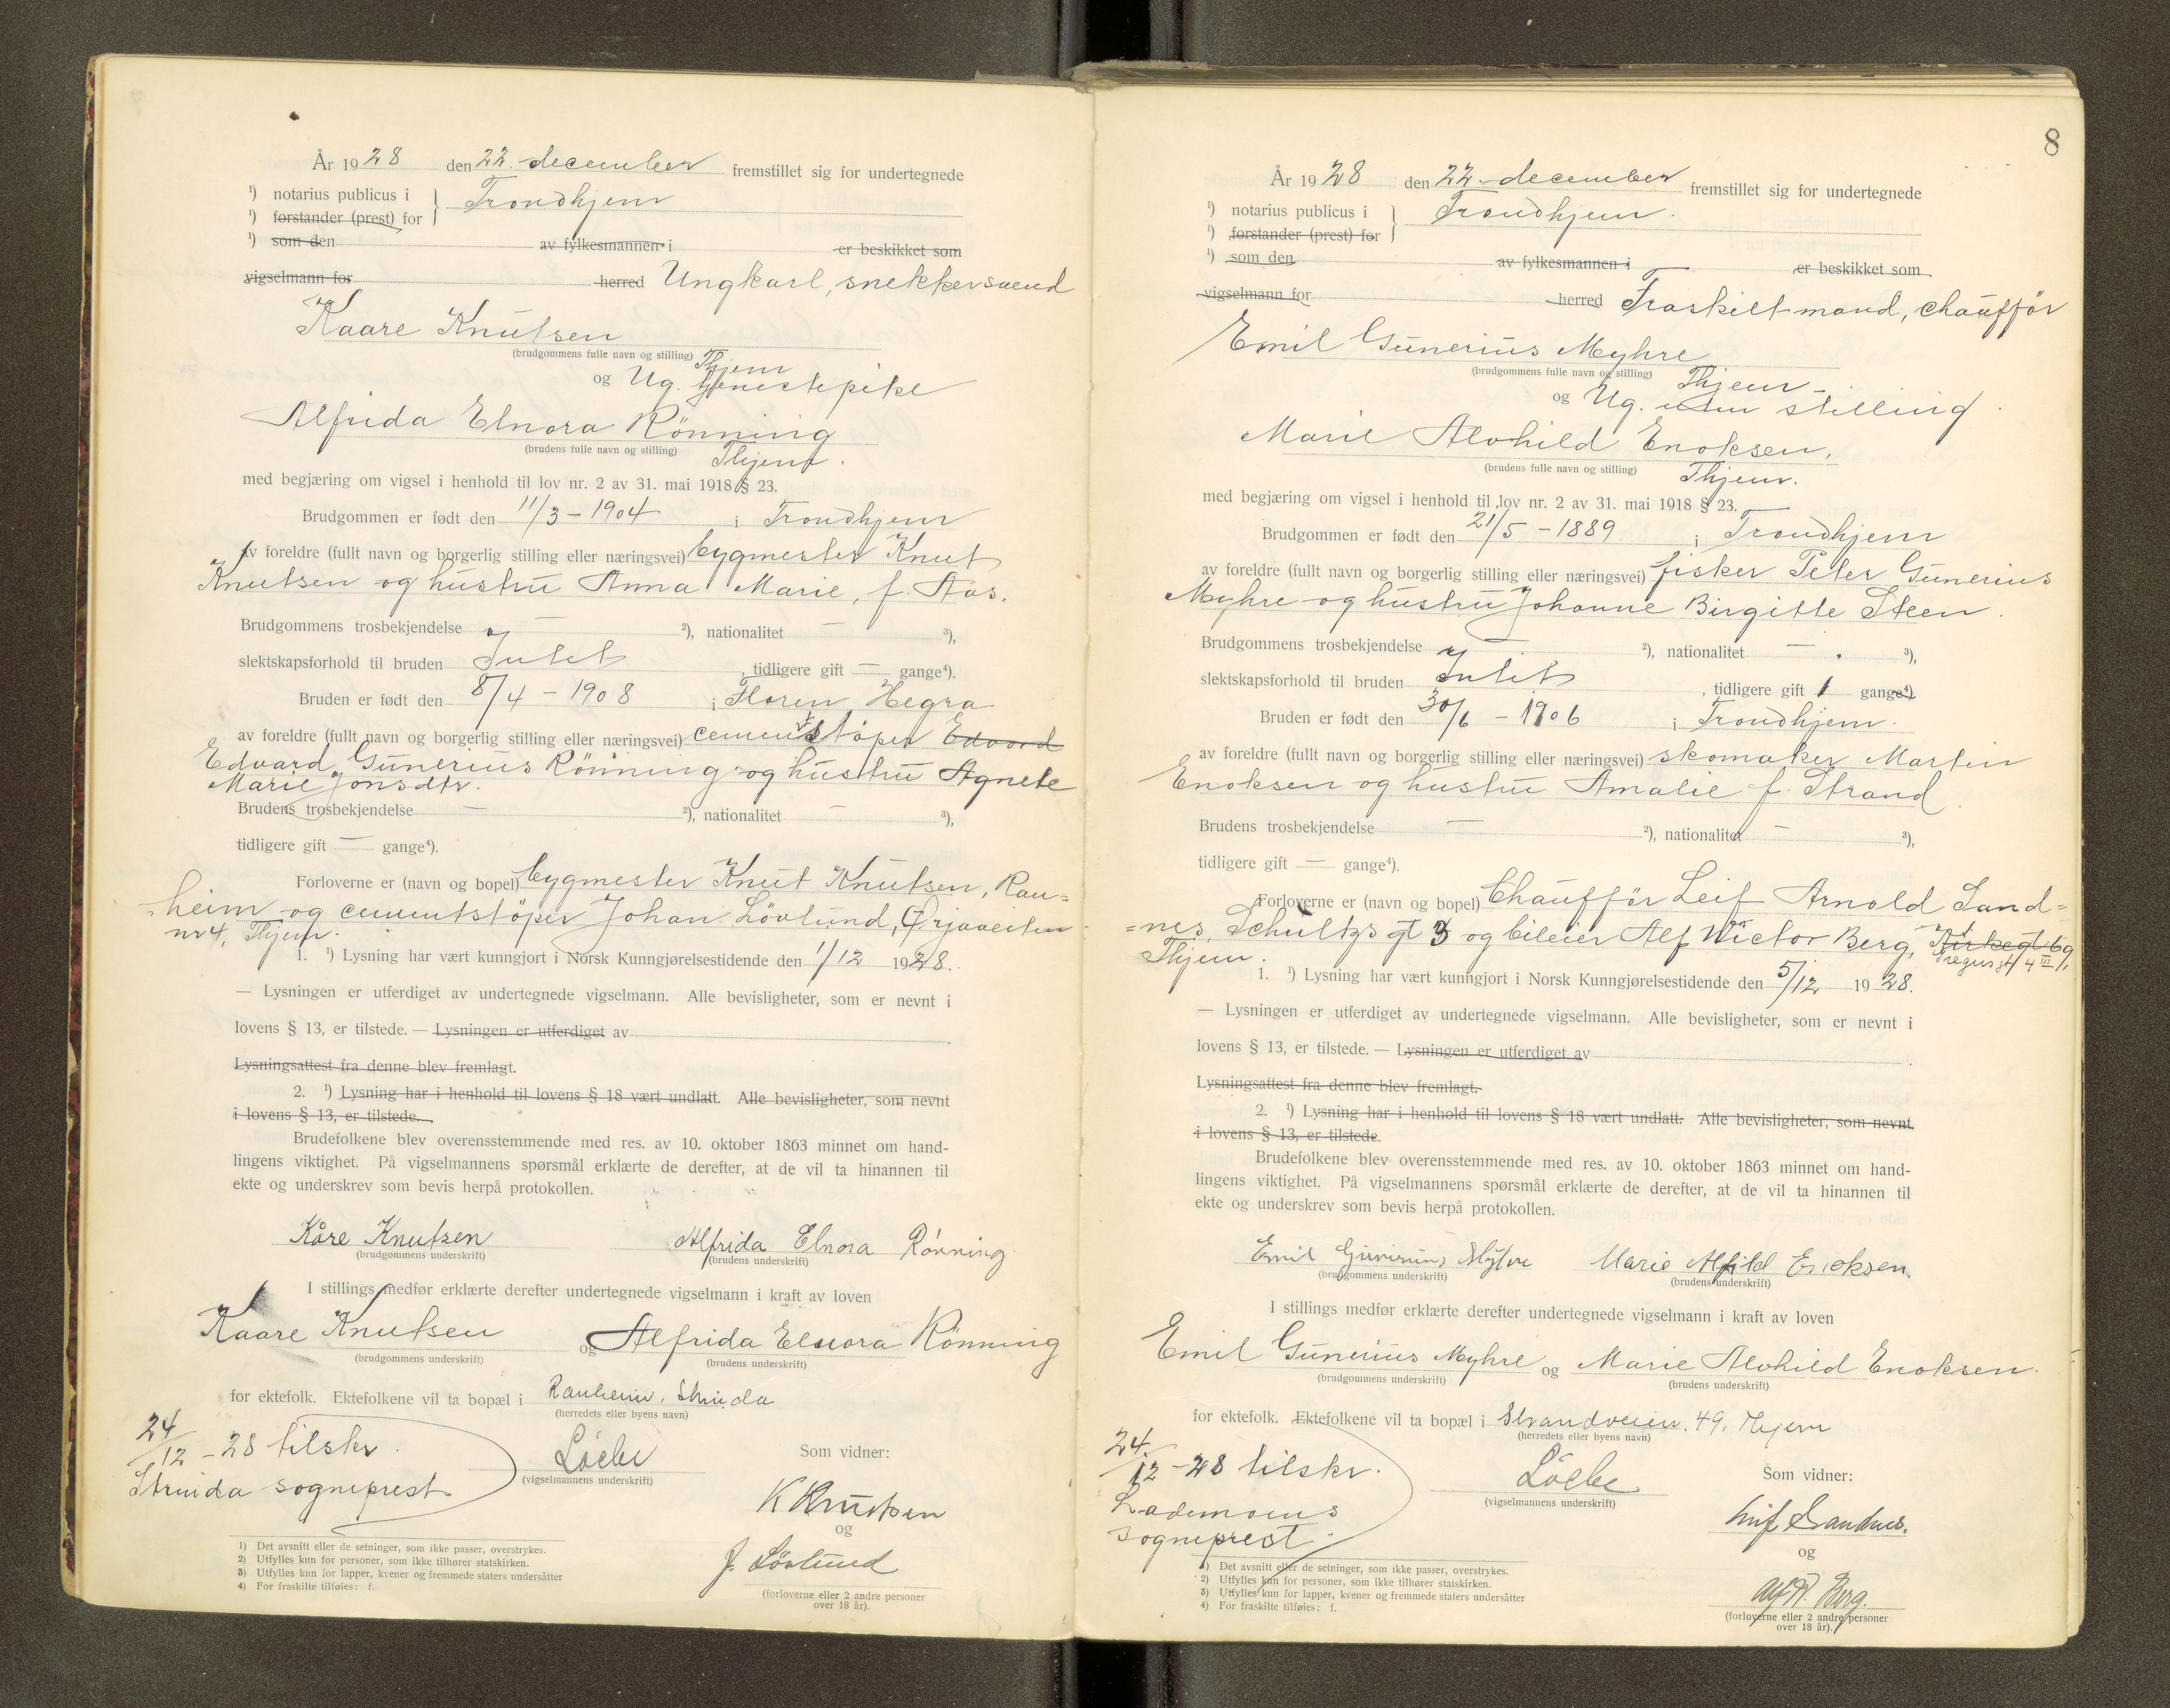 År 1928 den 22. december fremstillet sig for undertegnede
¹) notarius publicus i } Trondhjem
¹) forstander (prest) for
¹) som den av fylkesmannen i er beskikket som
vigselmann for herred Ungkarl, snekkersvend
Kaare Knutsen
(brudgommens fulle navn og stilling) Thjem
og Ug. tjenestepike
Alfrida Elnora Rönning
(brudens fulle navn og stilling) Thjem.
med begjæring om vigsel i henhold til lov nr. 2 av 31. mai 1918 § 23.
Brudgommen er født den 11/3 - 1904 i Trondhjem
av foreldre (fullt navn og borgerlig stilling eller næringsvei) bygmester Knut
Knutsen og hustru Anna Marie, f. Aas.
Brudgommens trosbekjendelse — ²), nationalitet — ³),
slektskapsforhold til bruden Intet, tidligere gift — gange⁴).
Bruden er født den 8/4 - 1908 i Floren Hegra
av foreldre (fullt navn og borgerlig stilling eller næringsvei) cementstöper Edvard
Edvard Gunerius Rönning og hustru Agnete
Marie Jonsdtr.
Brudens trosbekjendelse — ²), nationalitet — ³),
tidligere gift — gange⁴).
Forloverne er (navn og bopel) bygmester Knut Knutsen, Ran=
=heim og cementstöper Johan Lövlund, Ørjaveiten
nr 4, Thjem.
1. ¹) Lysning har vært kunngjort i Norsk Kunngjørelsestidende den 1/12 1928.
— Lysningen er utferdiget av undertegnede vigselmann. Alle bevisligheter, som er nevnt i
lovens § 13, er tilstede. — Lysningen er utferdiget av
Lysningsattest fra denne blev fremlagt.
2. ¹) Lysning har i henhold til lovens § 18 vært undlatt. Alle bevisligheter, som nevnt
i lovens § 13, er tilstede.
Brudefolkene blev overensstemmende med res. av 10. oktober 1863 minnet om hand-
lingens viktighet. På vigselmannens spørsmål erklærte de derefter, at de vil ta hinannen til
ekte og underskrev som bevis herpå protokollen.
Kåre Knutsen Alfrida Elnora Rönning
(brudgommens underskrift) (brudens underskrift)
I stillings medfør erklærte derefter undertegnede vigselmann i kraft av loven
Kaare Knutsen og Alfrida Elnora Rönning
(brudgommens underskrift) (brudens underskrift)
for ektefolk. Ektefolkene vil ta bopæl i Ranheim, Strinda
(herredets eller byens navn)
24/12 - 28 tilskr.
Strinda sogneprest
Löche
(vigselmannens underskrift)
Som vidner:
K Knutsen
og
J. Lövlund
(forloverne eller 2 andre personer
over 18 år).
1) Det avsnitt eller de setninger, som ikke passer, overstrykes.
2) Utfylles kun for personer, som ikke tilhører statskirken.
3) Utfylles kun for lapper, kvener og fremmede staters undersåtter
4) For fraskilte tilføies: f.
8
År 1928 den 22. december fremstillet sig for undertegnede
¹) notarius publicus i } Trondhjem.
¹) forstander (prest) for
¹) som den av fylkesmannen i er beskikket som
vigselmann for herred Fraskilt mand, chauffør
Emil Gunerius Myhre
(brudgommens fulle navn og stilling) Thjem
og Ug. uten stilling
Marie Alvhild Enoksen,
(brudens fulle navn og stilling) Thjem.
med begjæring om vigsel i henhold til lov nr. 2 av 31. mai 1918 § 23.
Brudgommen er født den 21/5 - 1889 i Trondhjem
av foreldre (fullt navn og borgerlig stilling eller næringsvei) fisker Peter Gunerius
Myhre og hustru Johanne Birgitte Steen.
Brudgommens trosbekjendelse — ²), nationalitet — ³),
slektskapsforhold til bruden Intet, tidligere gift 1 gange⁴)
Bruden er født den 30/6 - 1906 i Trondhjem.
av foreldre (fullt navn og borgerlig stilling eller næringsvei) skomaker Martin
Enoksen og hustru Amalie f. Strand
Brudens trosbekjendelse — ²), nationalitet — ³),
tidligere gift — gange⁴).
Forloverne er (navn og bopel) Chaufför Leif Arnold Sand=
=nes, Schultzs gt 3 og bileier Alf Victor Berg, Kirkegt 69,
Thjem.
1. ¹) Lysning har vært kunngjort i Norsk Kunngjørelsestidende den 5/12 1928.
— Lysningen er utferdiget av undertegnede vigselmann. Alle bevisligheter, som er nevnt i
lovens § 13, er tilstede. — Lysningen er utferdiget av
Lysningsattest fra denne blev fremlagt.
2. ¹) Lysning har i henhold til lovens § 18 vært undlatt. Alle bevisligheter, som nevnt
i lovens § 13, er tilstede.
Brudefolkene blev overensstemmende med res. av 10. oktober 1863 minnet om hand-
lingens viktighet. På vigselmannens spørsmål erklærte de derefter, at de vil ta hinannen til
ekte og underskrev som bevis herpå protokollen.
Emil Gunerius Myhre Marie Alfild Enoksen.
(brudgommens underskrift) (brudens underskrift)
I stillings medfør erklærte derefter undertegnede vigselmann i kraft av loven
Emil Gunerius Myhre og Marie Alvhild Enoksen.
(brudgommens underskrift) (brudens underskrift)
for ektefolk. Ektefolkene vil ta bopæl i Strandveien 49, Thjem
(herredets eller byens navn)
24/12 - 28 tilskr.
Lademoens
sogneprest.
Löche
(vigselmannens underskrift)
Som vidner:
Leif Sandnes.
og
Alf V. Berg.
(forloverne eller 2 andre personer
over 18 år).
1) Det avsnitt eller de setninger, som ikke passer, overstrykes.
2) Utfylles kun for personer, som ikke tilhører statskirken.
3) Utfylles kun for lapper, kvener og fremmede staters undersåtter
4) For fraskilte tilføies: f.